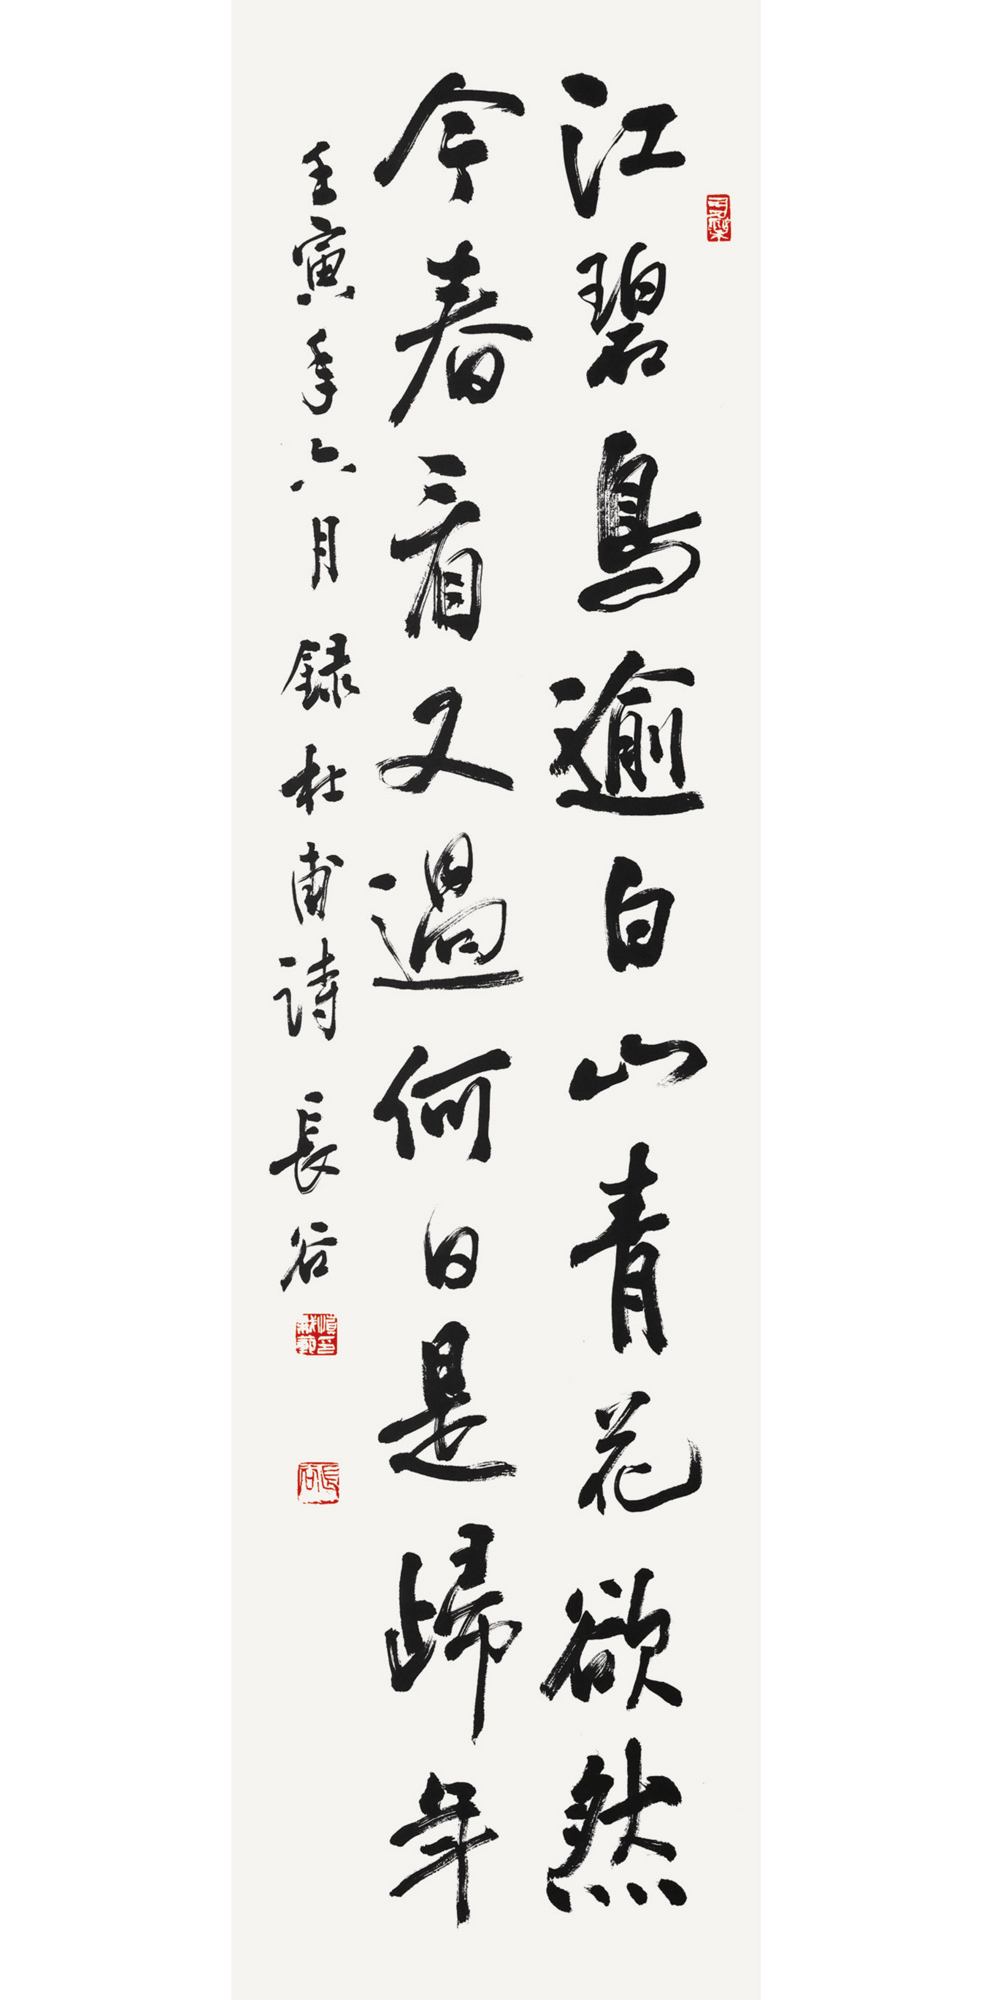 江碧鳥逾白山青花欲然
今春看又過何日是歸年
壬寅年六月錄杜甫詩 長谷